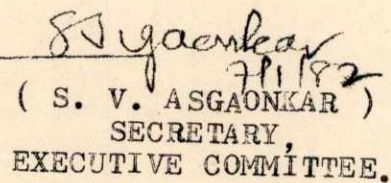 7/1/82
( S. V. ASGAONKAR )
SECRETARY,
EXECUTIVE COMMITTEE.